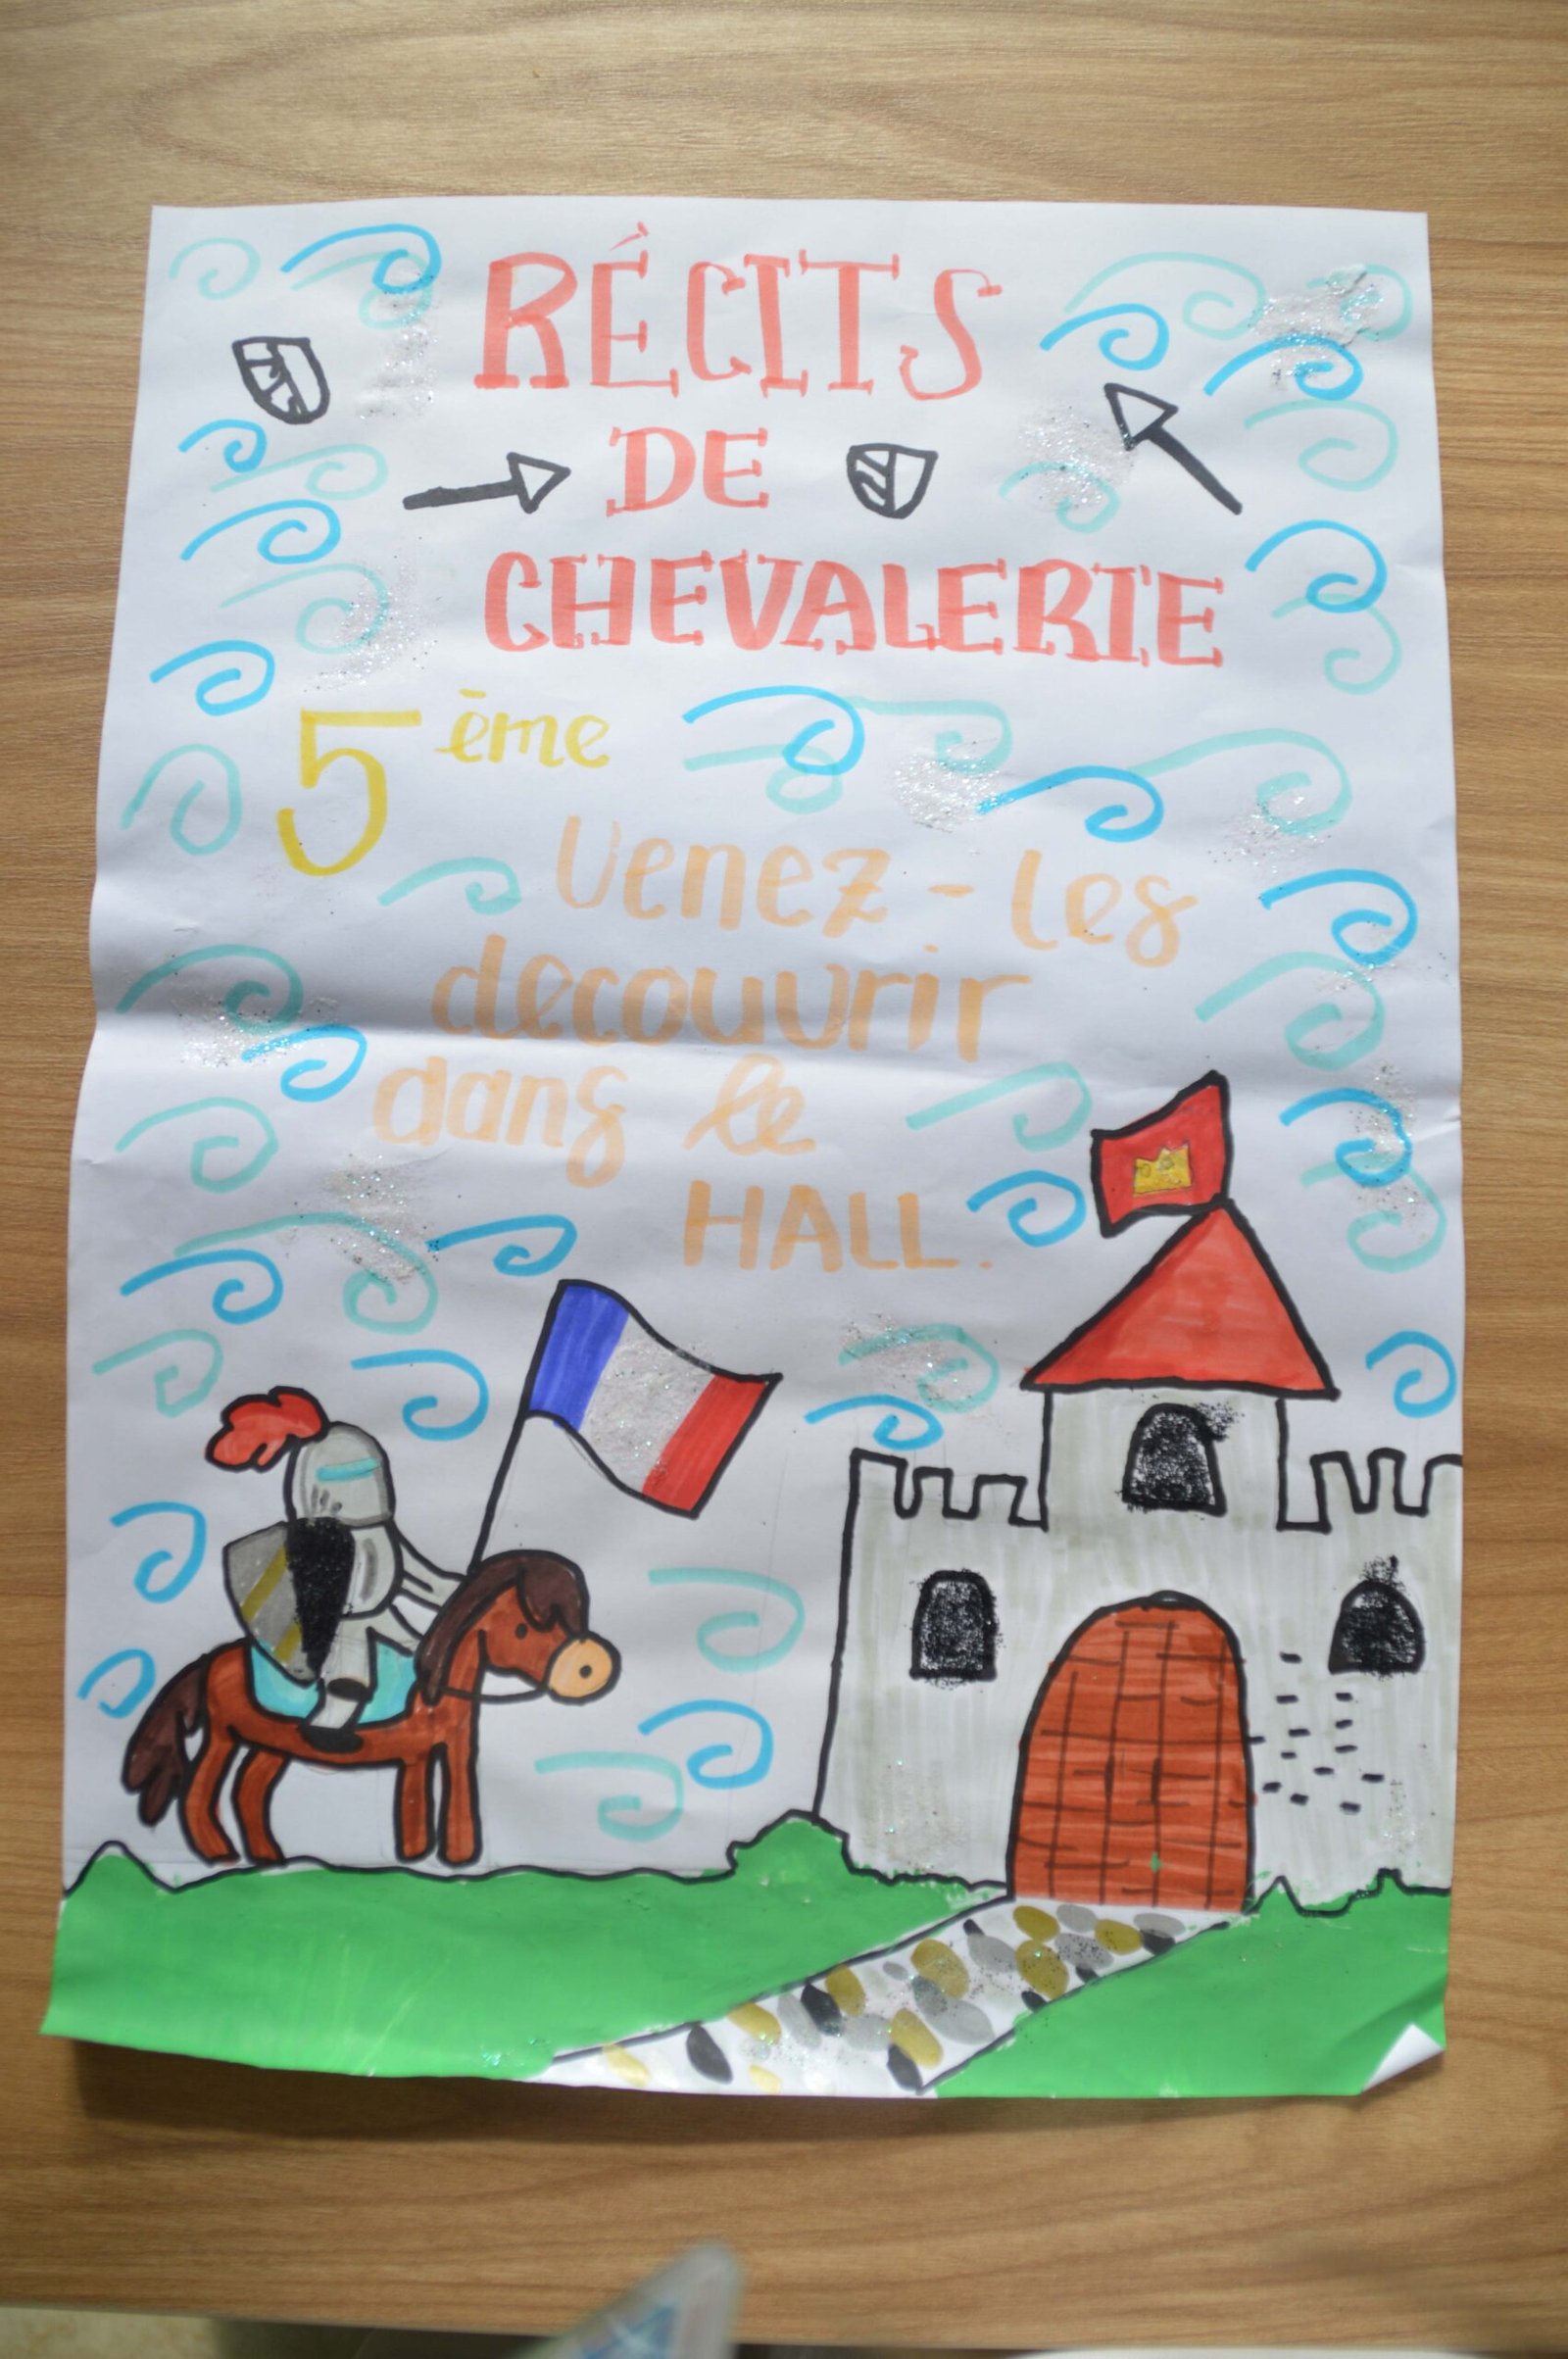 RÉCITS
DE
CHEVALERIE
5ème
Venez-les
decouvrir
dans le
HALL.